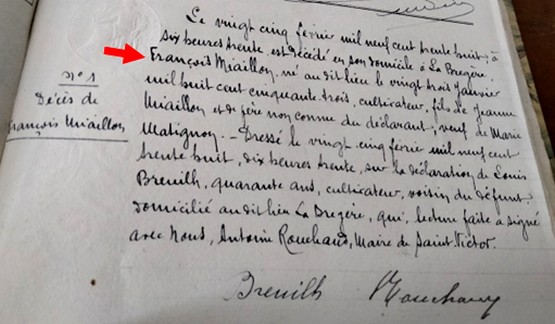 Le vingt cinq février mil neuf cent trente huit, à
six heures trente, est décédé en son domicile à La Bregère,
François Miaillon, né au dit lieu le vingt trois Janvier
mil huit cent cinquante trois, cultivateur, fils de Jeanne
Miaillon et de père non connu du déclarant; veuf de Marie
Matignon. – Dressé le vingt cinq février mil neuf cent
trente huit, dix heures trente, sur la déclaration de Louis
Breuilh, quarante ans, cultivateur, voisin du défunt,
domicilié au dit lieu La Bregère, qui, lecture faite a signé
avec Nous, Antoine Rouchaud, Maire de Saint Victor.
N° 1
Décès de
François Miaillon
Breuilh Rouchaud